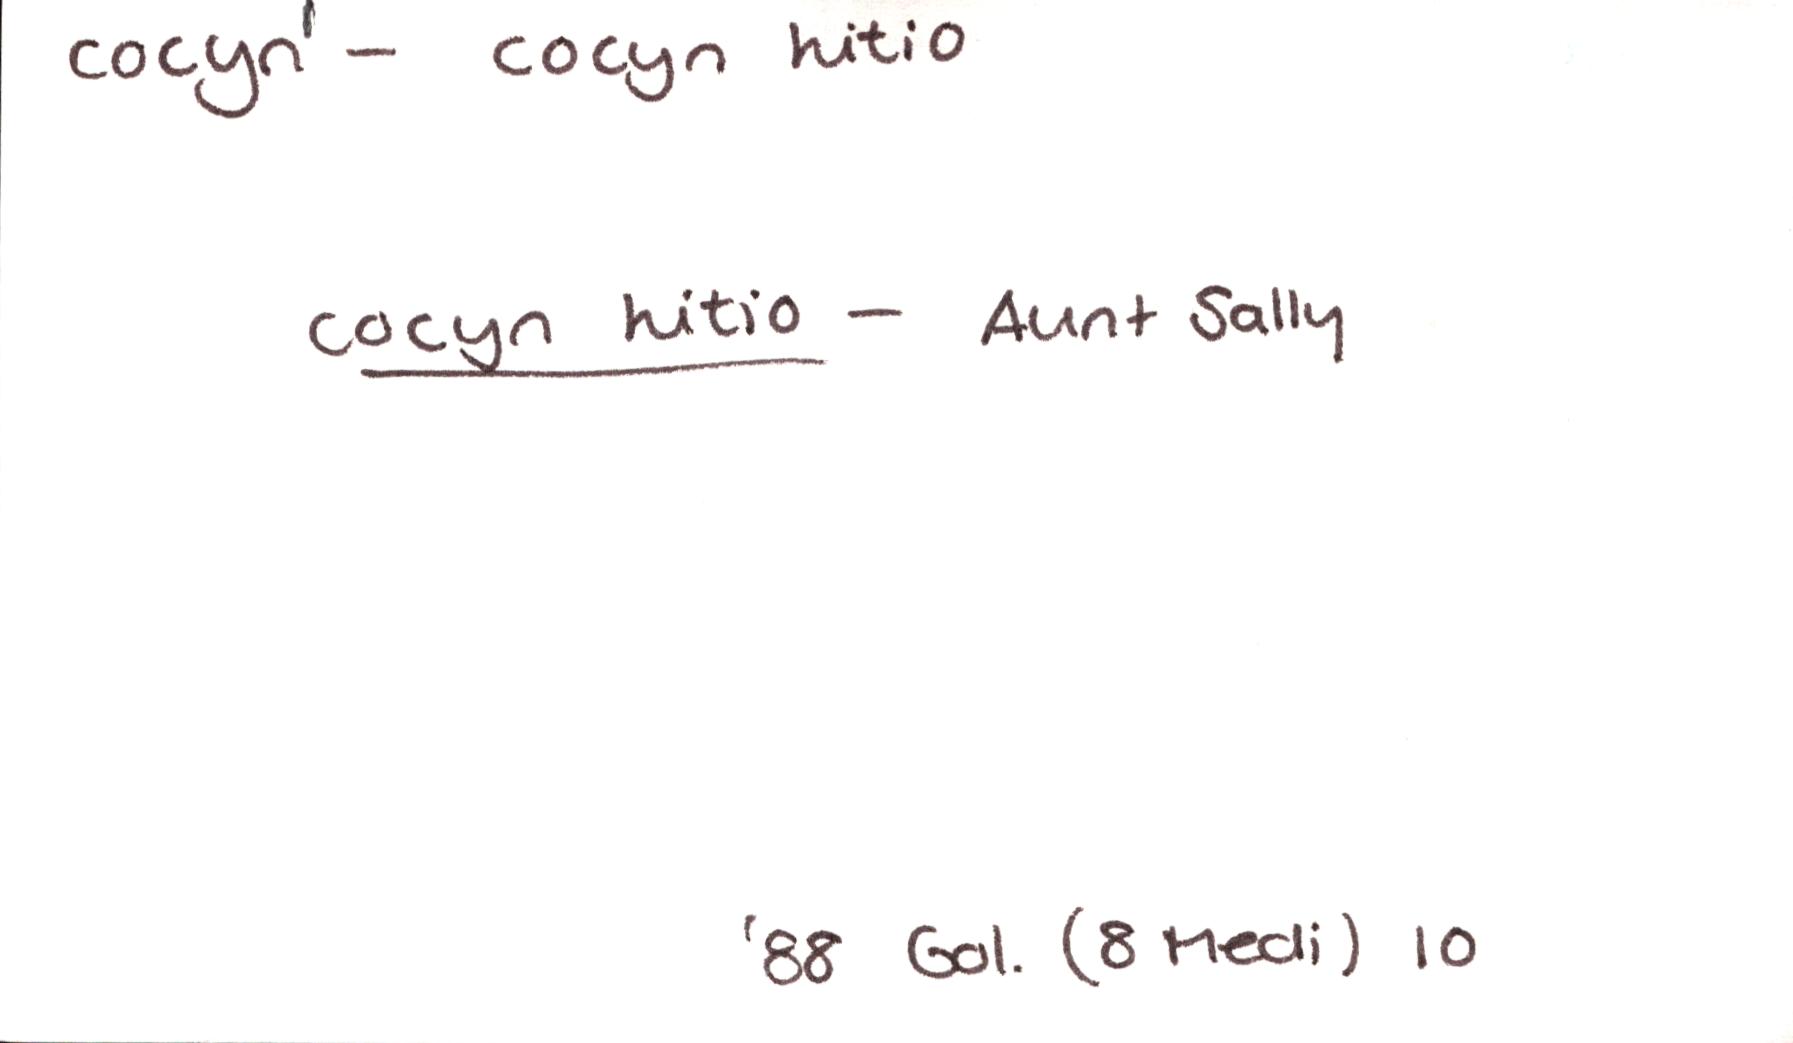 cocyn¹ – cocyn hitio
cocyn hitio – Aunt Sally
'88 Gol. (8 Medi) 10